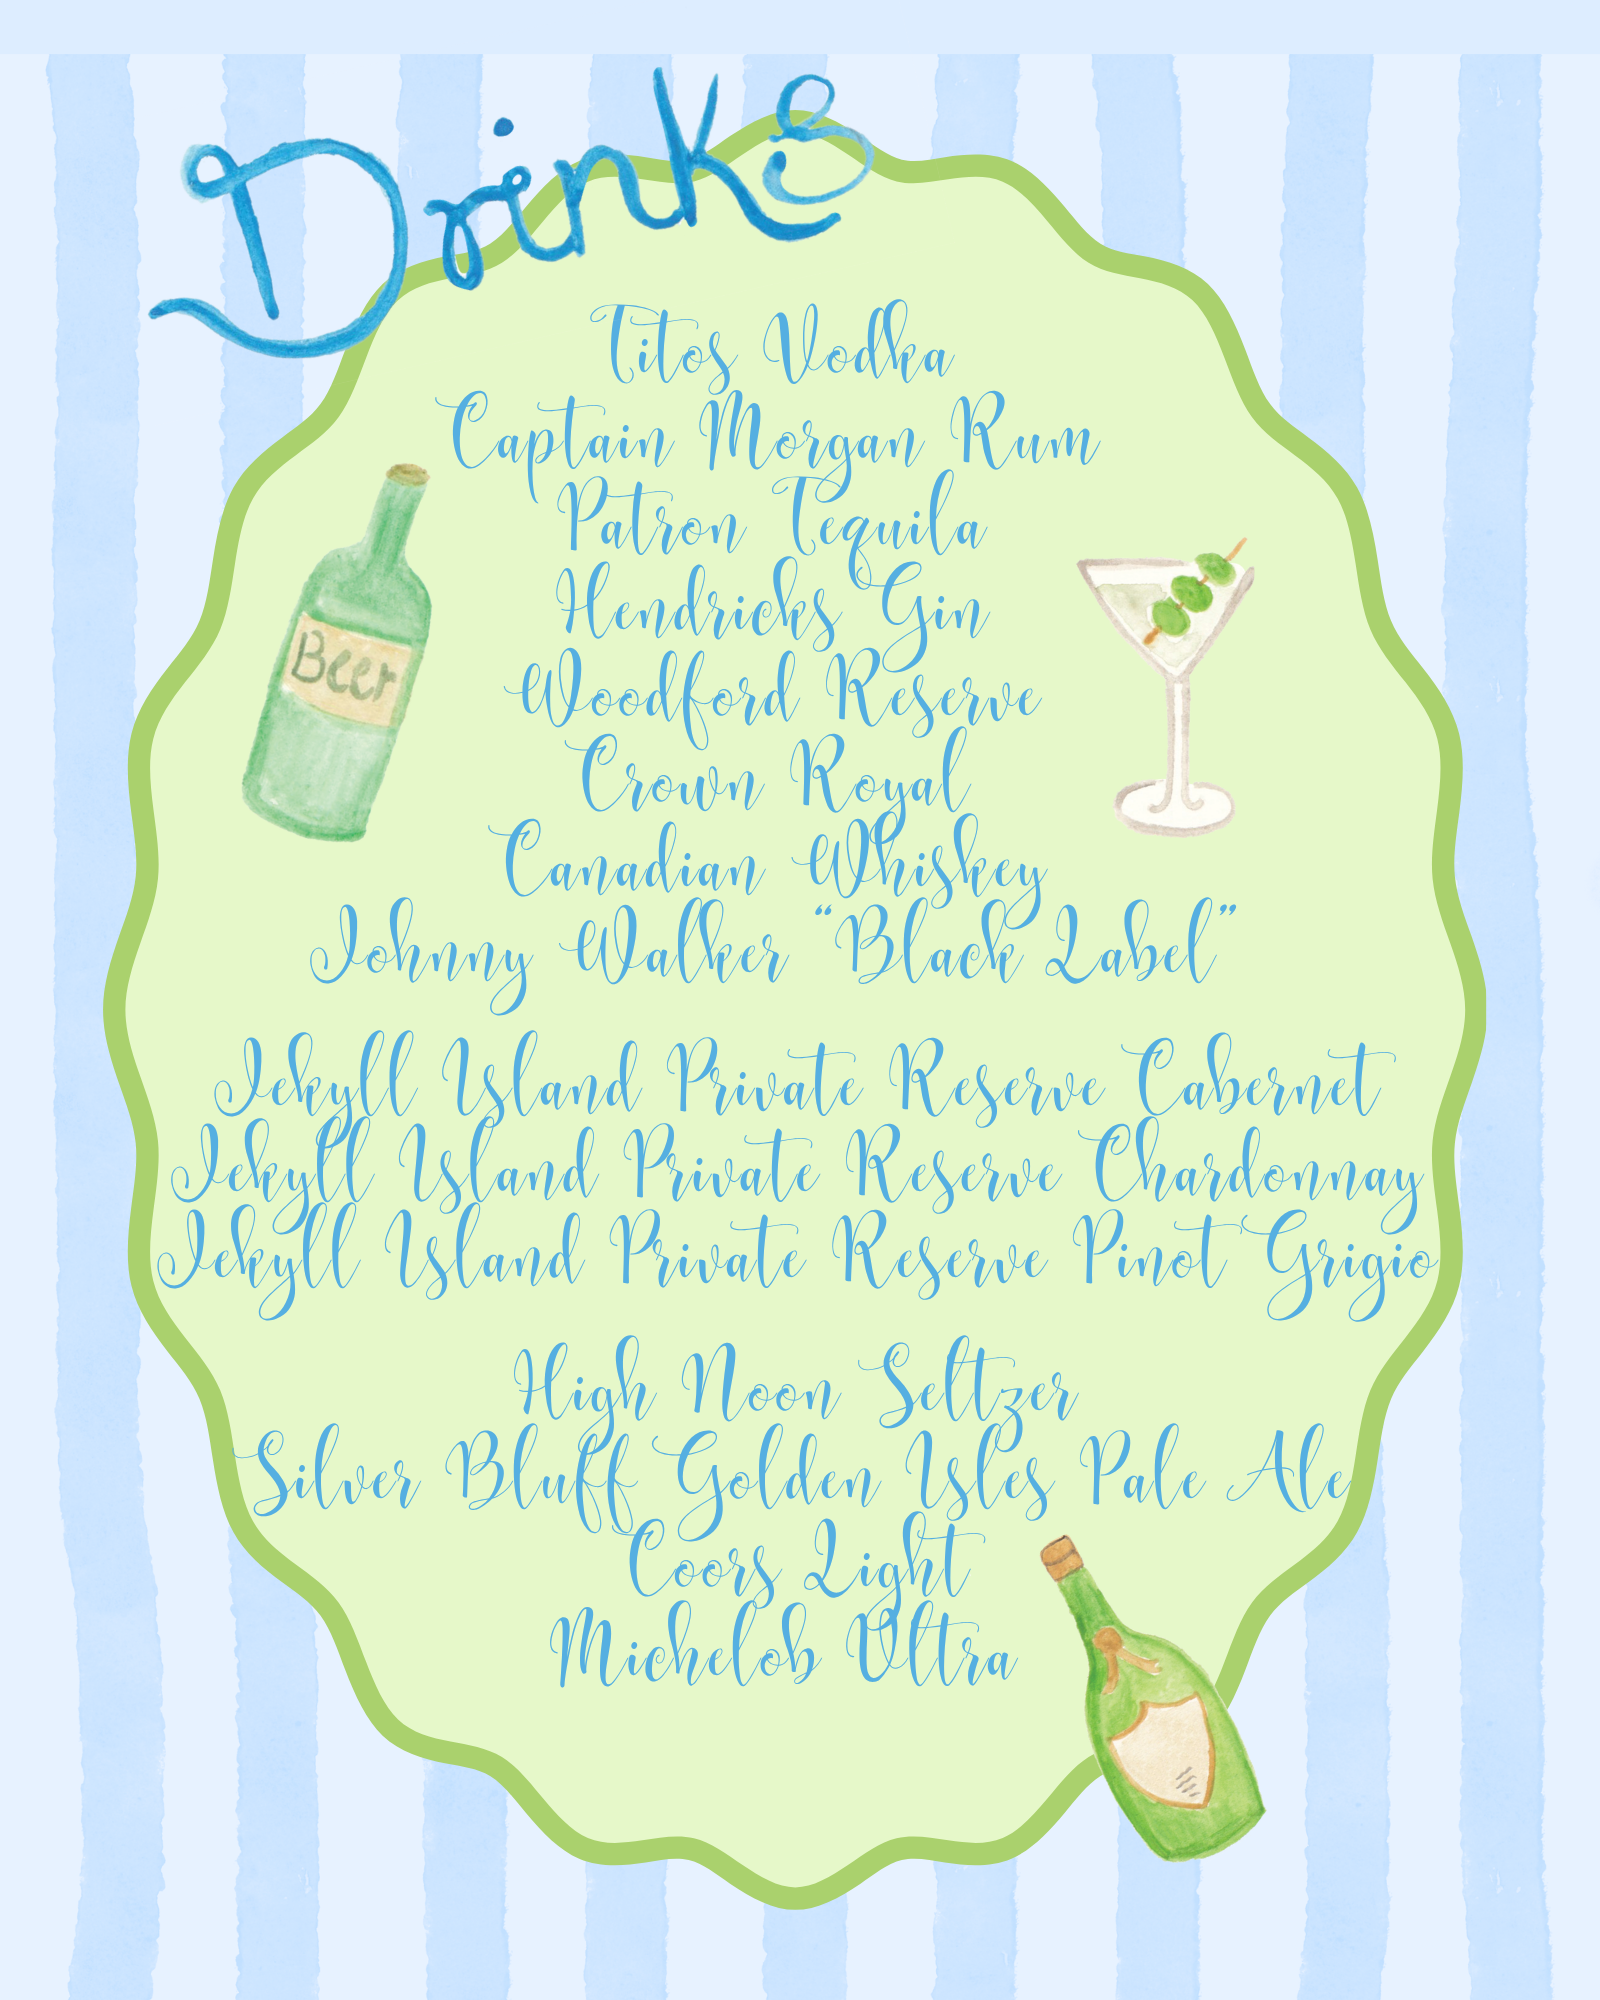 Drinks
Titos Vodka
Captain Morgan Rum
Patron Tequila
Hendricks Gin
Woodford Reserve
Crown Royal
Canadian Whiskey
Johnny Walker “Black Label”
Jekyll Island Private Reserve Cabernet
Jekyll Island Private Reserve Chardonnay
Jekyll Island Private Reserve Pinot Grigio
High Noon Seltzer
Silver Bluff Golden Isles Pale Ale
Coors Light
Michelob Ultra
Beer